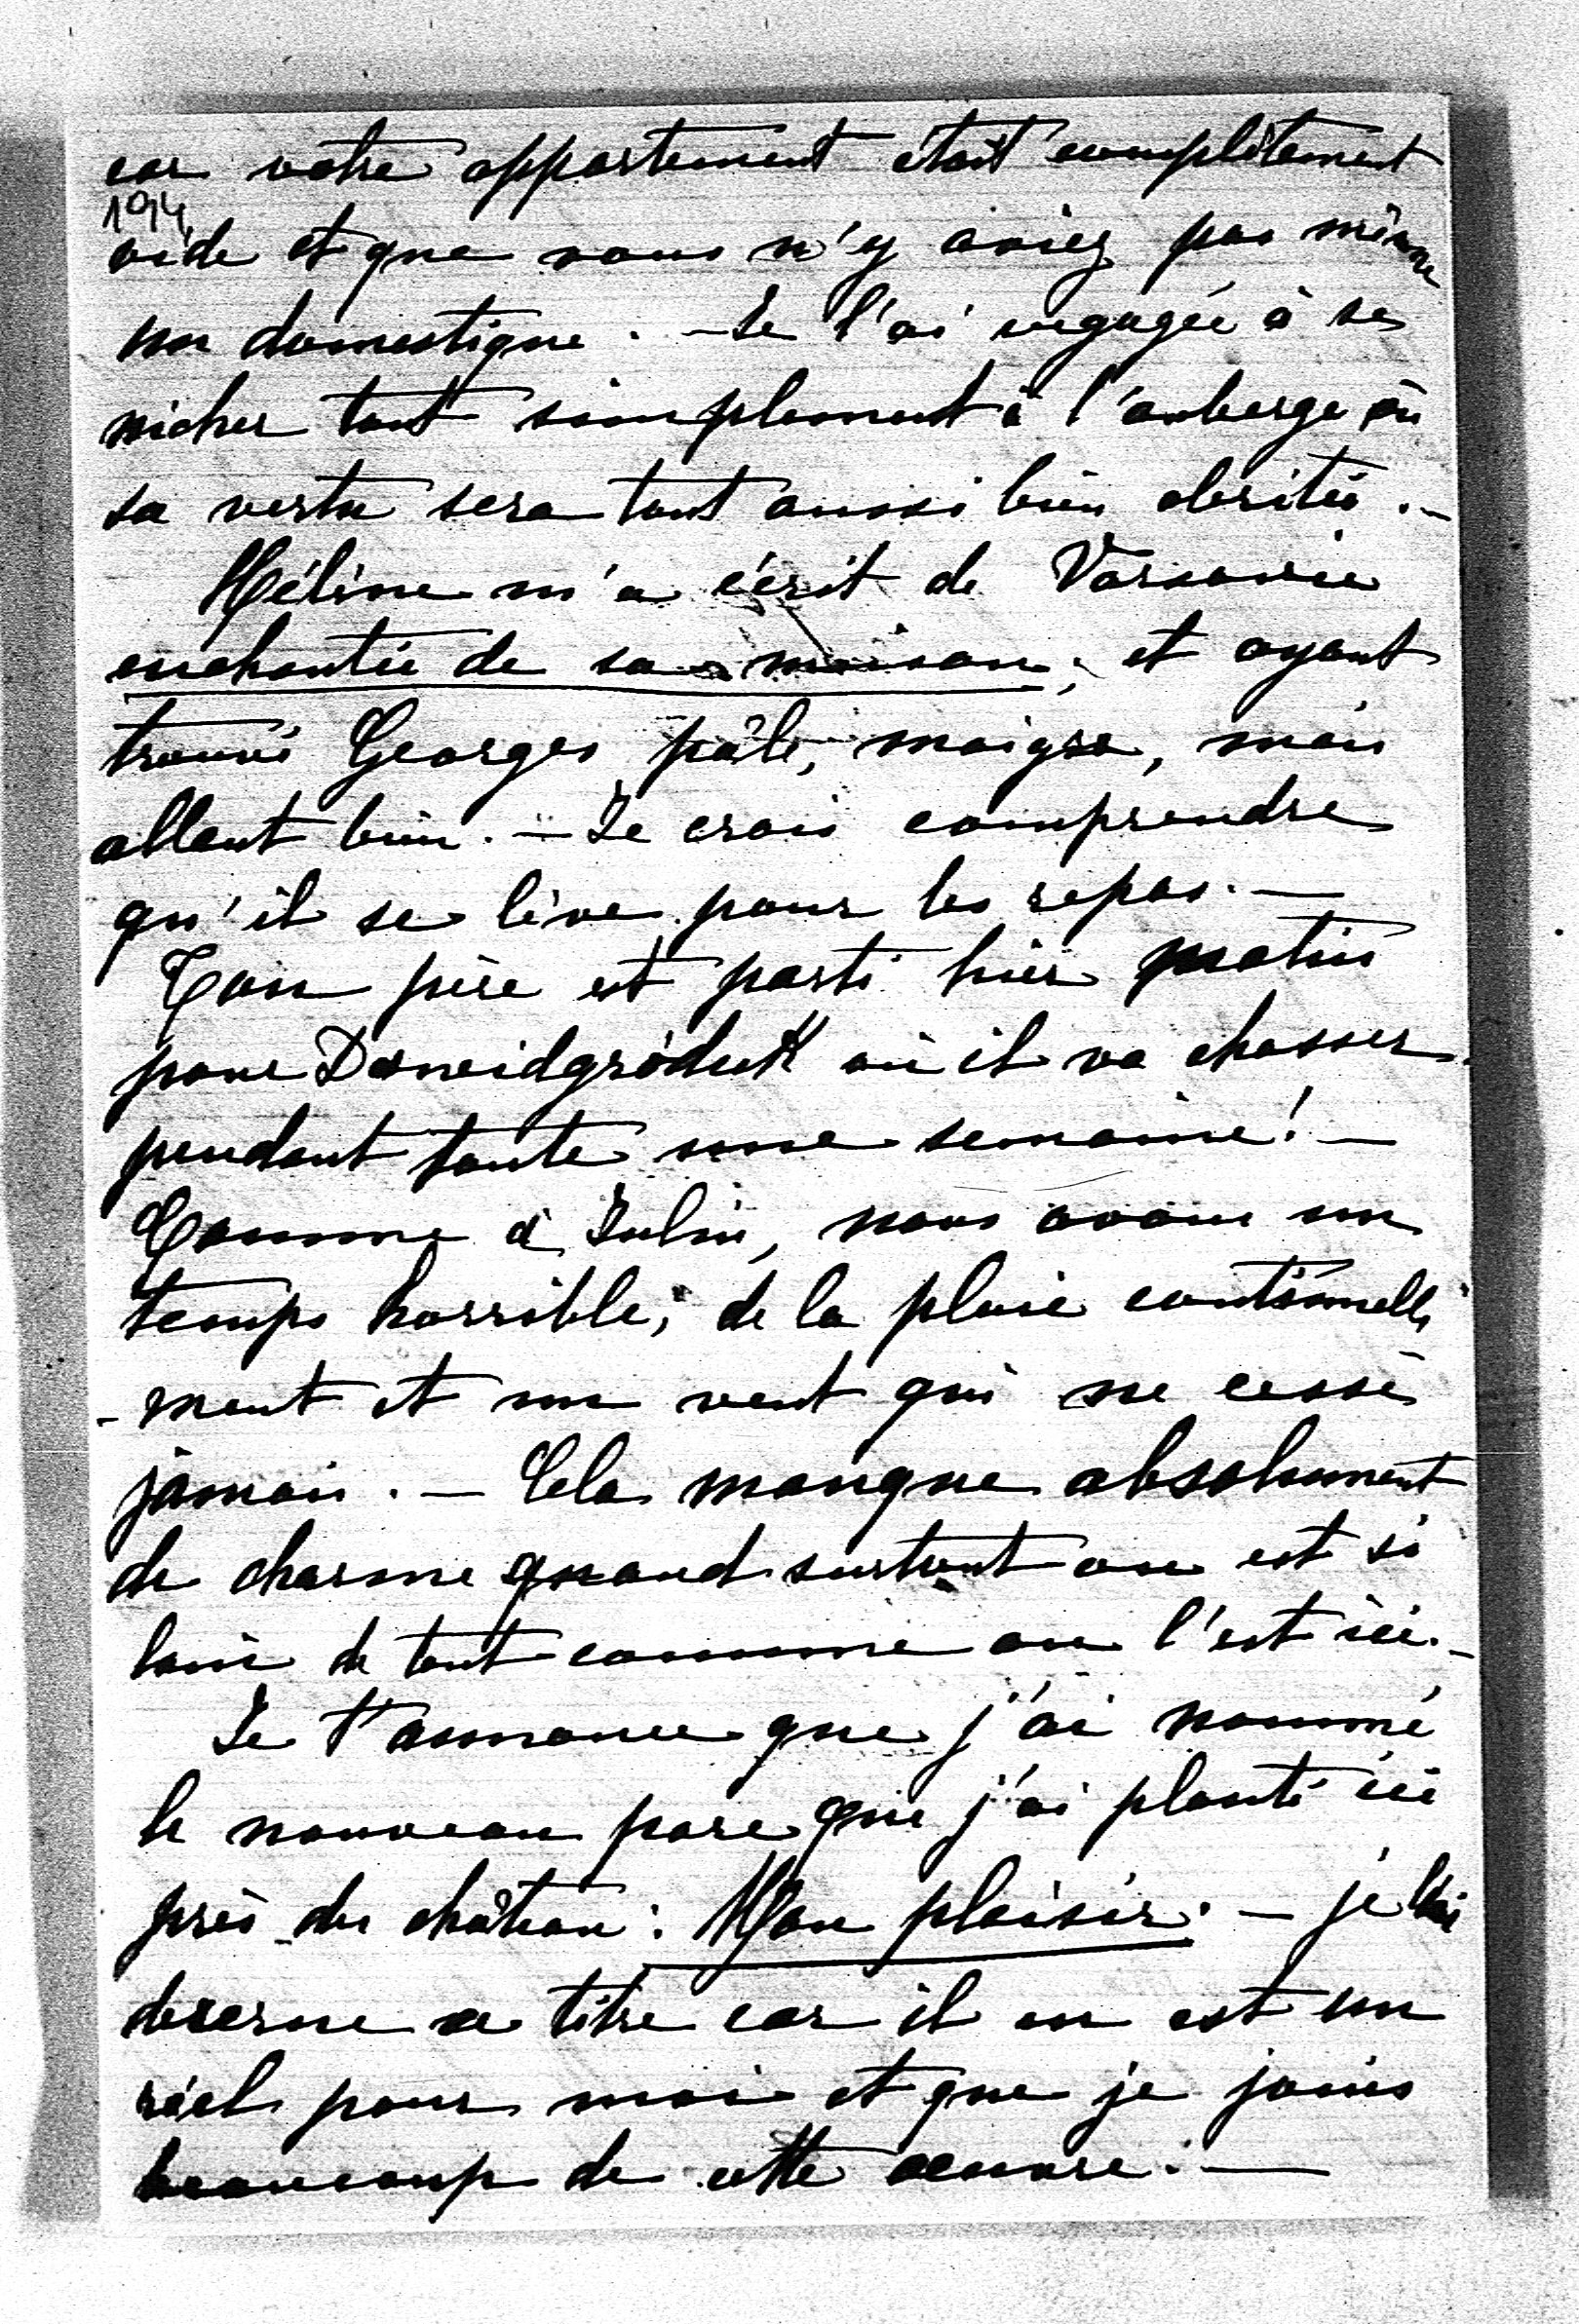 car votre appartement était complètement
194
vide et que vous n'y aviez pas même
un domestique. – Je l'ai engagée à se
nicher tout simplement à l'auberge où
sa vertu sera tout aussi bien abritée. –
Hélène m'a écrit de Varsovie
enchantée de sa maison, et ayant
trouvé Georges pâle, maigre, mais
allant bien. – Je crois comprendre
qu'il se lève pour les repas. –
Ton père est parti hier matin
pour Dawidgródek où il va chasser
pendant toute une semaine! –
Comme à Julin, nous avons un
temps horrible, de la pluie continuelle
-ment et un vent qui ne cesse
jamais. – Cela manque absolument
de charme quand surtout on est si
loin de tout comme on l'est ici. –
Je t'annonce que j'ai nommé
le nouveau parc que j'ai planté ici
près du château: Mon plaisir. – je lui
decerne ce titre car il en est un
réel pour moi et que je jouis
beaucoup de cette oeuvre. –